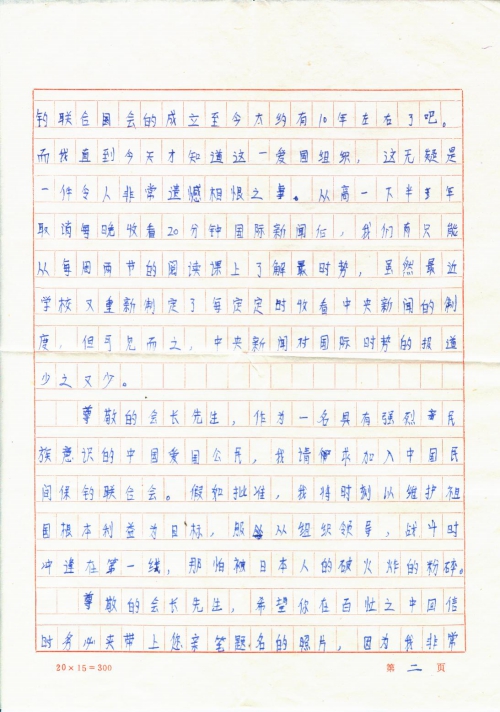 钓联合国会的成立至今大约有10年左右了吧。
而我直到今天才知道这一爱国组织，这无疑是
一件令人非常遗憾相恨之事。从高一下半年
取消每晚收看20分钟国际新闻后，我们只能
从每周两节的阅读课上了解最时势，虽然最近
学校又重新制定了每定定时收看中央新闻的制
度，但可见而之，中央新闻对国际时势的报道
少之又少。
尊敬的会长先生，作为一名具有强烈民
族意识的中国爱国公民，我请求加入中国民
间保钓联合会。假如批准，我将时刻以维护祖
国根本利益为目标，服从组织领导，战斗时
冲逢在第一线，那怕被日本人的破火炸的粉碎。
尊敬的会长先生，希望你在百忙之中回信
时务必夹带上您亲笔题名的照片，因为我非常
20×15=300 第 二 页